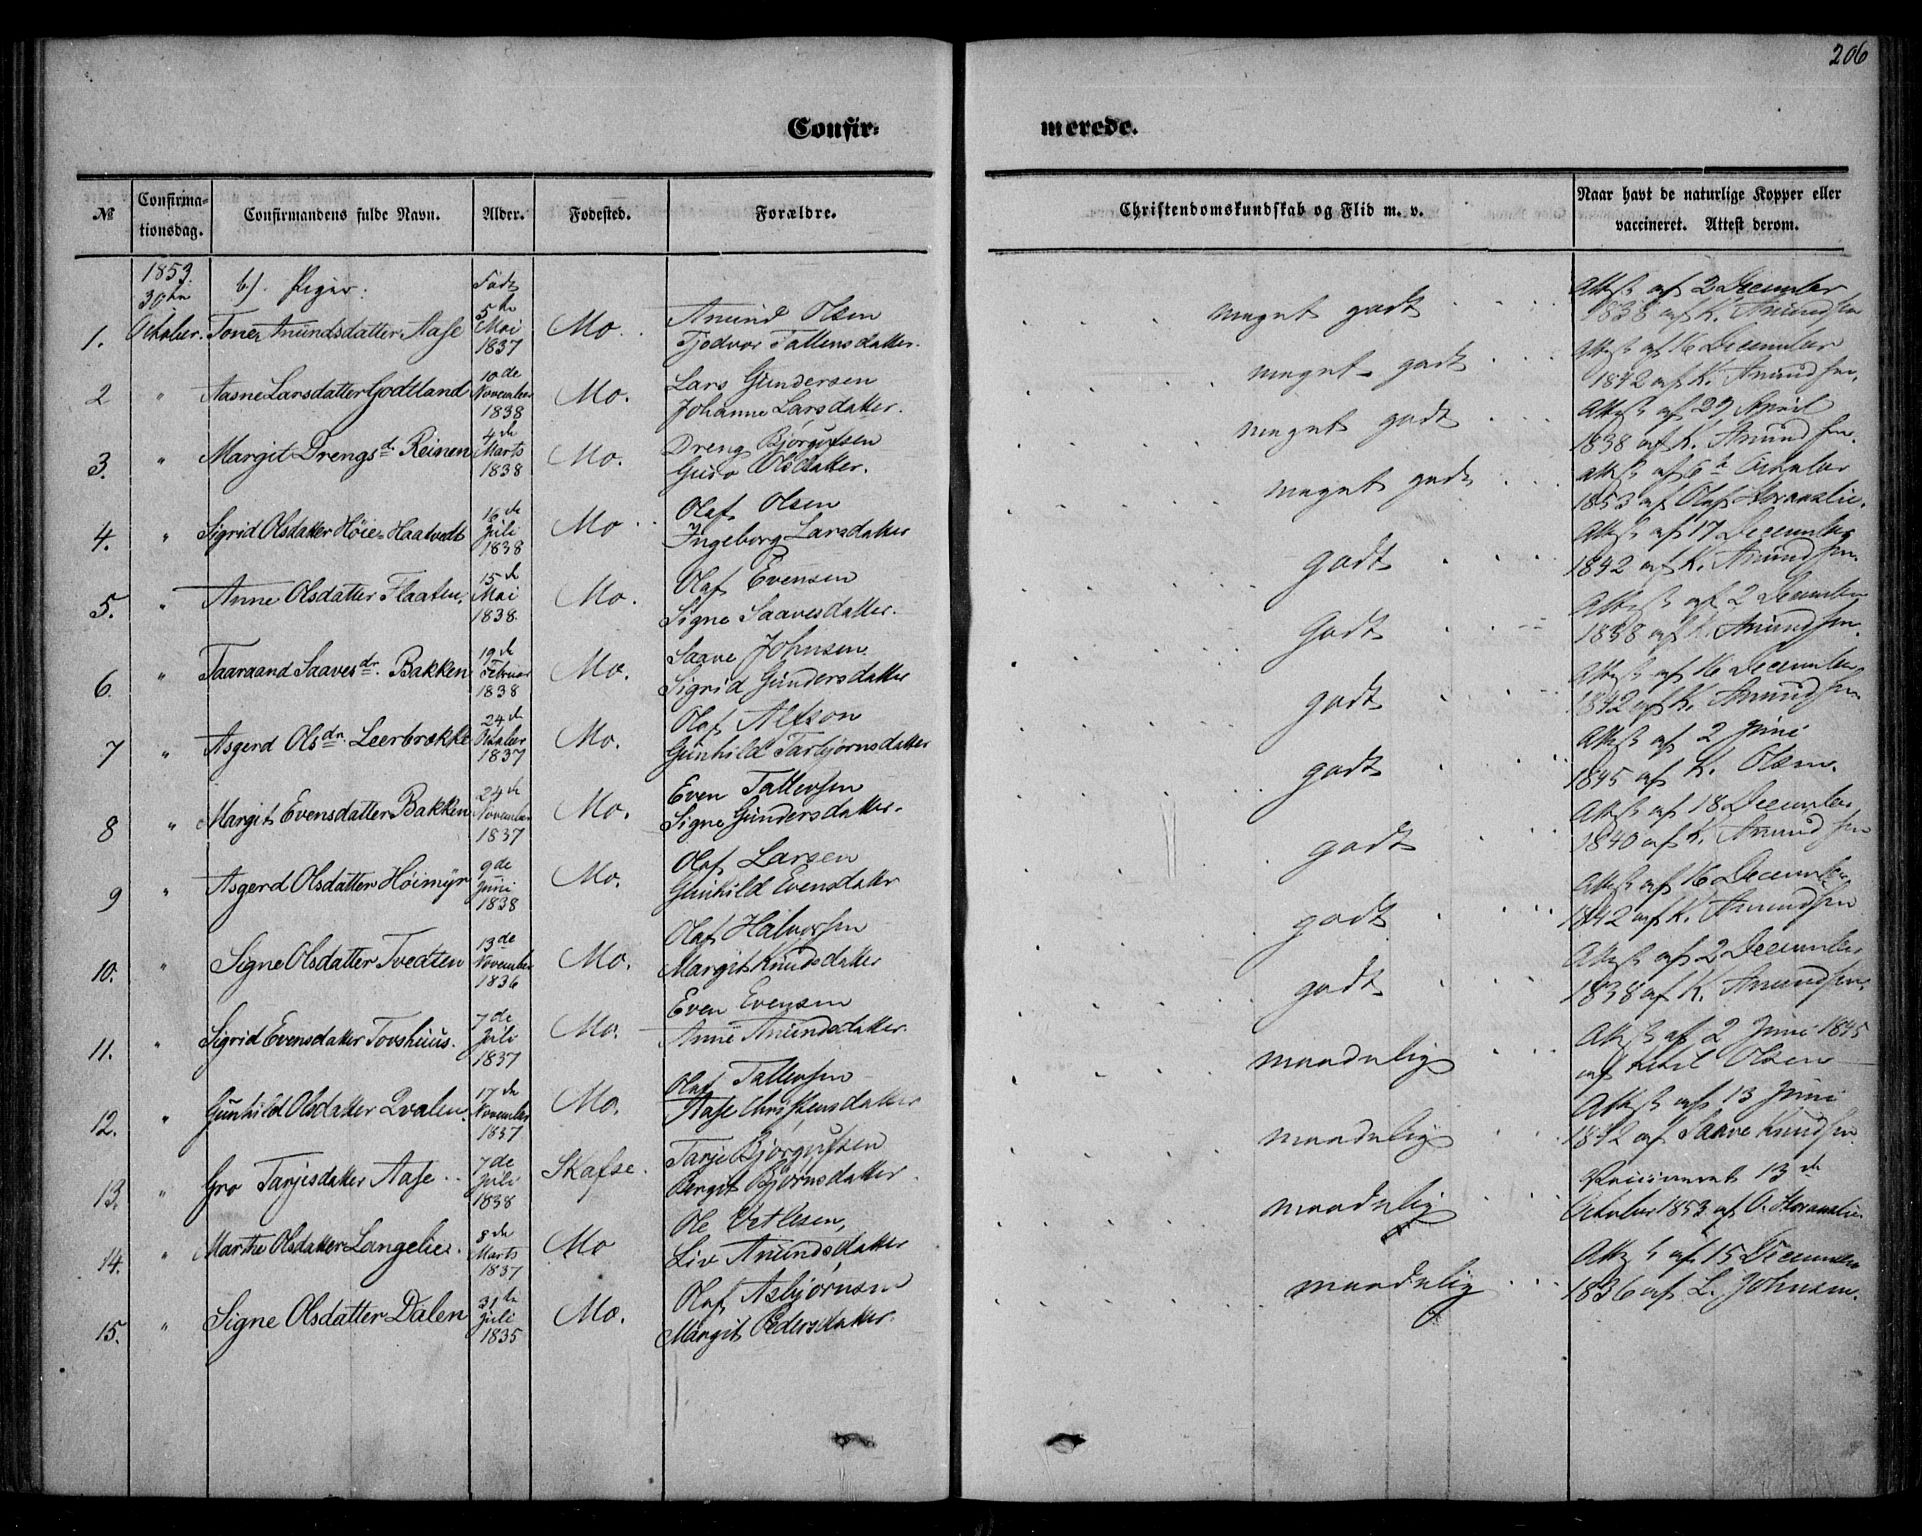 206
Confir: merede.
№ Confirma-tionsdag. Confirmandens fulde Navn. Alder. Fødested. Forældre. Christendomskundskab og Flid m. v. Naar havt de naturlige Kopper eller vaccineret. Attest derom.
1853. b). Piger. Født
1. 30te October. Tone Anundsdatter Aase 5te Mai 1837 Mo. Anund Olsen Tjodvor Tallensdatter. meget godt Attest af 2 December 1838 af K. Anundsen
2 " Aasne Larsdatter Godtland 10de November 1838 Mo. Lars Gundersen Johanne Larsdatter. meget godt Attest af 16 December 1842 af K. Anundsen.
3. " Margit Drengsdr. Reinen 4de Marts 1838 Mo. Dreng Bjørgufsen Guro Olsdatter. meget godt Attest af 23 April 1838 af K. Anundsen.
4. " Sigrid Olsdatter Höie-Haatvedt 16de Juli 1838 Mo Olaf Olsen Ingeborg Larsdatter meget godt Attest af 6te October 1853 af Olaf Storaaslie.
5. " Anne Olsdatter Flaaten. 15de Mai 1838. Mo. Olaf Evensen Signe Saavesdatter. godt Attest af 17 December 1842 af K. Anundsen.
6. " Taaraand Saavesdr. Bakken 19de Februar 1838 Mo. Saave Johnsen Sigrid Gundersdatter Godt Attest af 2 December 1838 af K. Anundsen.
7 " Asgerd Olsdr. Leerbrække 24de October 1837 Mo. Olaf Alfson Gunhild Tarbjørnsdatter godt Attest af 16 December 1842 af K. Anundsen
8 " Margit Evensdatter Bakken 24de November 1837 Mo. Even Tallevsen Signe Gundersdatter. godt Attest af 2 Juni 1845 af K. Olsen.
9 " Asgerd Olsdatter Höimyr 9de Juni 1838 Mo. Olaf Larsen Gunhild Evensdatter godt Attest af 18 December 1840 af K. Anundsen
10. " Signe Olsdatter Tvedten 13de November 1836 Mo. Olaf Halvorsen Margit Knudsdatter godt Attest af 16 December 1842 af K. Anundsen
11. " Sigrid Evensdatter Tovshuus. 7de Juli 1837 Mo. Even Evensen Anne Anundsdatter. godt Attest af 2 December 1838 af K. Anundsen.
12. " Gunhild Olsdatter Qvalen. 17de November 1837 Mo. Olaf Tallevsen Aase Christensdatter maadelig Attest af 2 Juni 1845 af Ketil Olsen
13. " Gro Tarjesdatter Aase 7de Juli 1838 Skafse. Tarje Bjørgufsen Bergit Bjørnsdatter. maadelig Attest af 13 Juni 1842 af Saave Knudsen
14. " Marthe Olsdatter Langelie. 8de Marts 1837 Mo Ole Vetlesen, Liv Anundsdatter maadelig Vaccineret 13de October 1853 af O. Storaaslie
15. " Signe Olsdatter Dalen 31te Juli 1835 Mo. Olaf Asbjørnsen Margit Pedersdatter. maadelig Attest af 15 December 1836 af L. Johnsen.